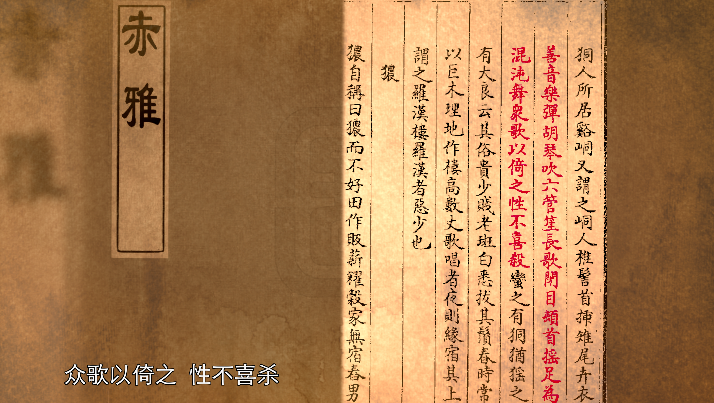 赤雅
狪人所居谿峒又謂之峒人椎髻首揷雉尾卉衣
善音樂彈胡琴吹六管笙長歌閉目頓首搖足為
混沌舞衆歌以倚之性不喜殺蠻之有狪猶猺之
有大良云其俗貴少賤老班白悉拔其鬚春時常
以巨木埋地作樓高數丈歌唱者夜則緣宿其上
謂之羅漢樓羅漢者惡少也
猿自稱曰猿而不好田作販薪糴穀家無宿舂男
众歌以倚之 性不喜杀